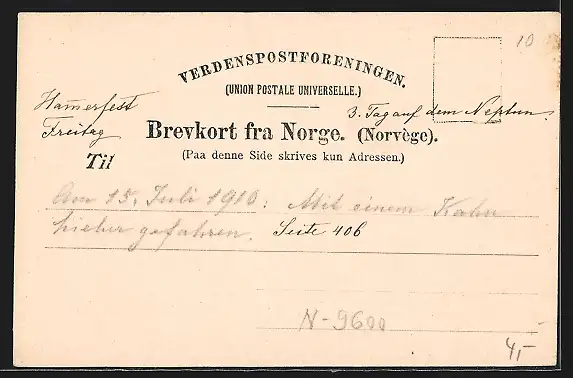 10
VERDENSPOSTFORENINGEN.
(UNION POSTALE UNIVERSELLE.)
Ham̅erfest
Freitag
3. Tag auf dem Neptun.
Brevkort fra Norge. (Norvège).
Til
(Paa denne Side skrives kun Adressen.)
Am 15. Juli 1910: Mit einem Kahn
hieher gefahren. Seite 406
N-9600
4,-